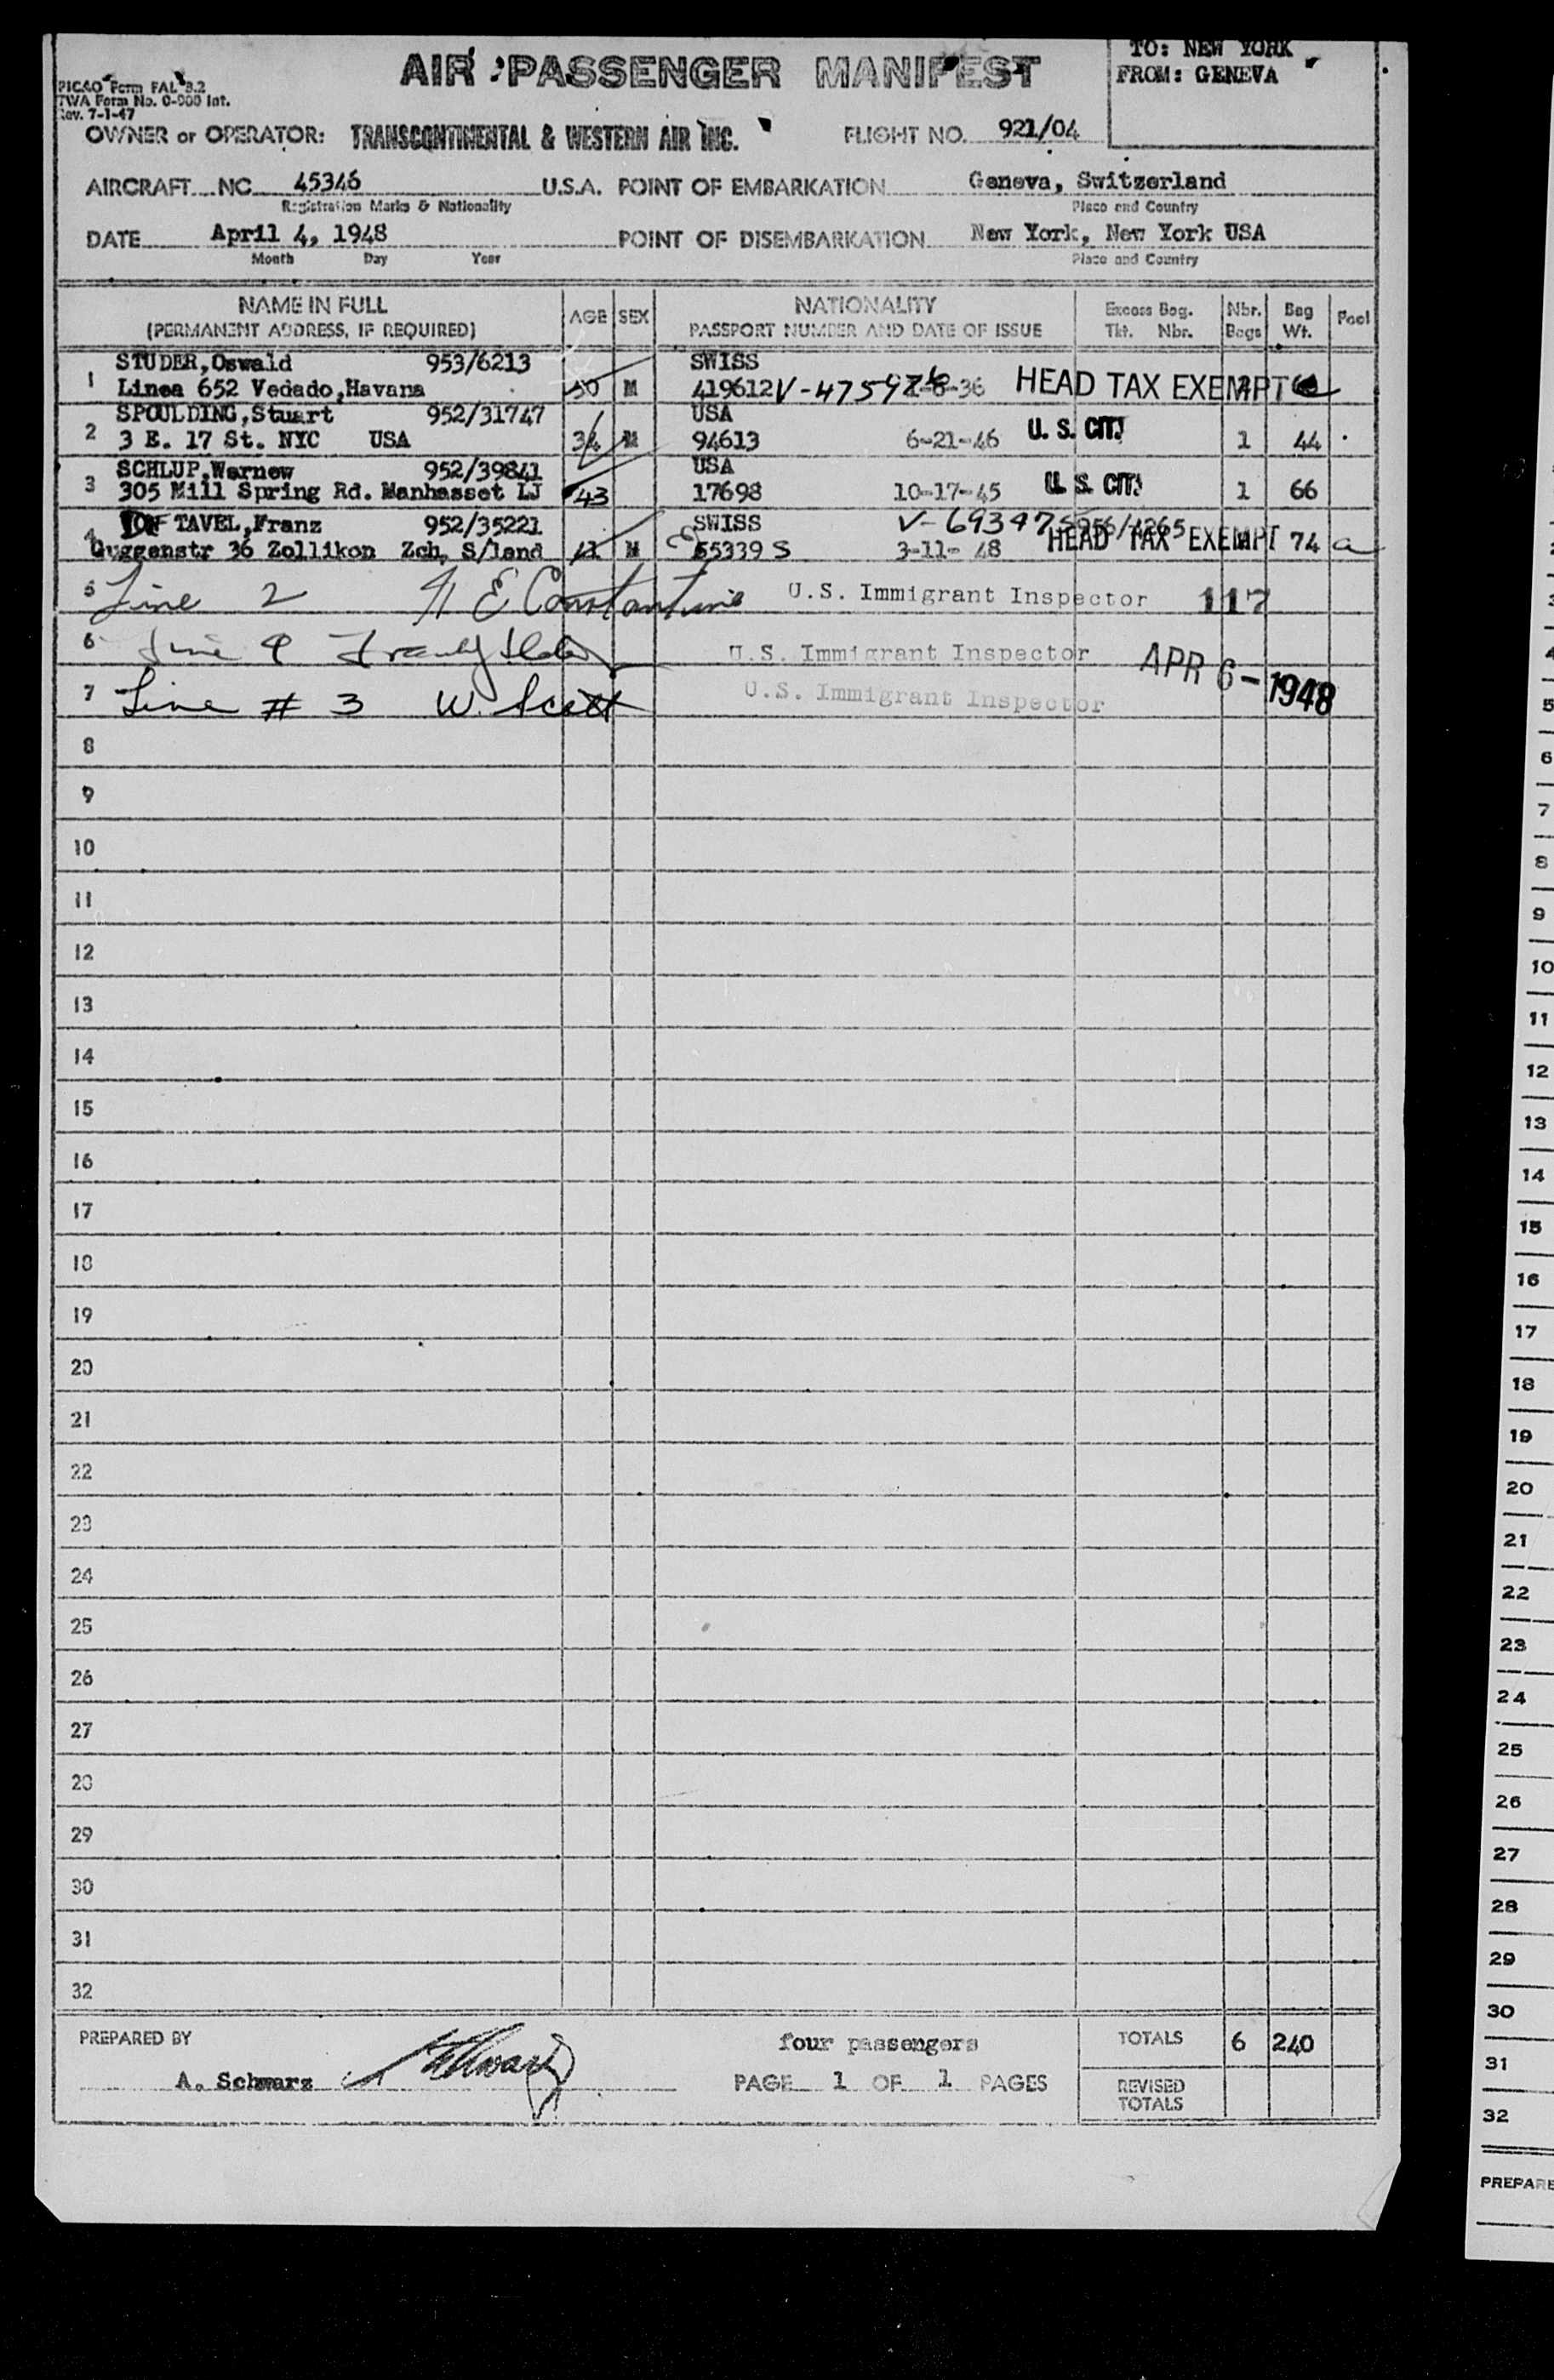 AIR PASSENGER MANIFEST
TO: NEW YORK
FROM: GENEVA
PICAO Form FAL 3.2
TWA Form No. O-900 Int.
Rev. 7-1-47
OWNER or OPERATOR: TRANSCONTINENTAL & WESTERN AIR INC. FLIGHT NO. 921/04
AIRCRAFT NC 45346 U.S.A. POINT OF EMBARKATION Geneva, Switzerland
Registration Marks & Nationality Place and Country
DATE April 4, 1948 POINT OF DISEMBARKATION New York, New York USA
Month Day Year Place and Country
NAME IN FULL AGE SEX NATIONALITY Excess Bag. Nbr. Bag Pool
(PERMANENT ADDRESS, IF REQUIRED) PASSPORT NUMBER AND DATE OF ISSUE Tkt. Nbr. Bags Wt.
STUDER,Oswald 953/6213 SWISS
1 Linea 652 Vedado,Havana 50 M 419612 HEAD TAX EXEMPT
SPOULDING,Stuart 952/31747 USA
2 3 E. 17 St. NYC USA 34 M 94613 6-21-46 U. S. CIT. 1 44
SCHLUP,Warnew 952/39841 USA
3 305 Mill Spring Rd. Manhasset LJ 43 17698 10-17-45 U. S. CIT. 1 66
TAVEL,Franz 952/35221 SWISS 956/4265
4 Guggenstr 36 Zollikon Zch, S/land M 55339 S 3-11- 48 HEAD TAX EXEMPT 74 a
5 Line 2 Constantine U.S. Immigrant Inspector 117
6 Line U.S. Immigrant Inspector APR 6-1948
7 Line # 3 W. Scott U.S. Immigrant Inspector
8
9
10
11
12
13
14
15
16
17
18
19
20
21
22
23
24
25
26
27
28
29
30
31
32
PREPARED BY four passengers TOTALS 6 240
A. Schwarz PAGE 1 OF 1 PAGES REVISED
TOTALS
5
6
7
8
9
10
11
12
13
14
15
16
17
18
19
20
21
22
23
24
25
26
27
28
29
30
31
32
PREPARE